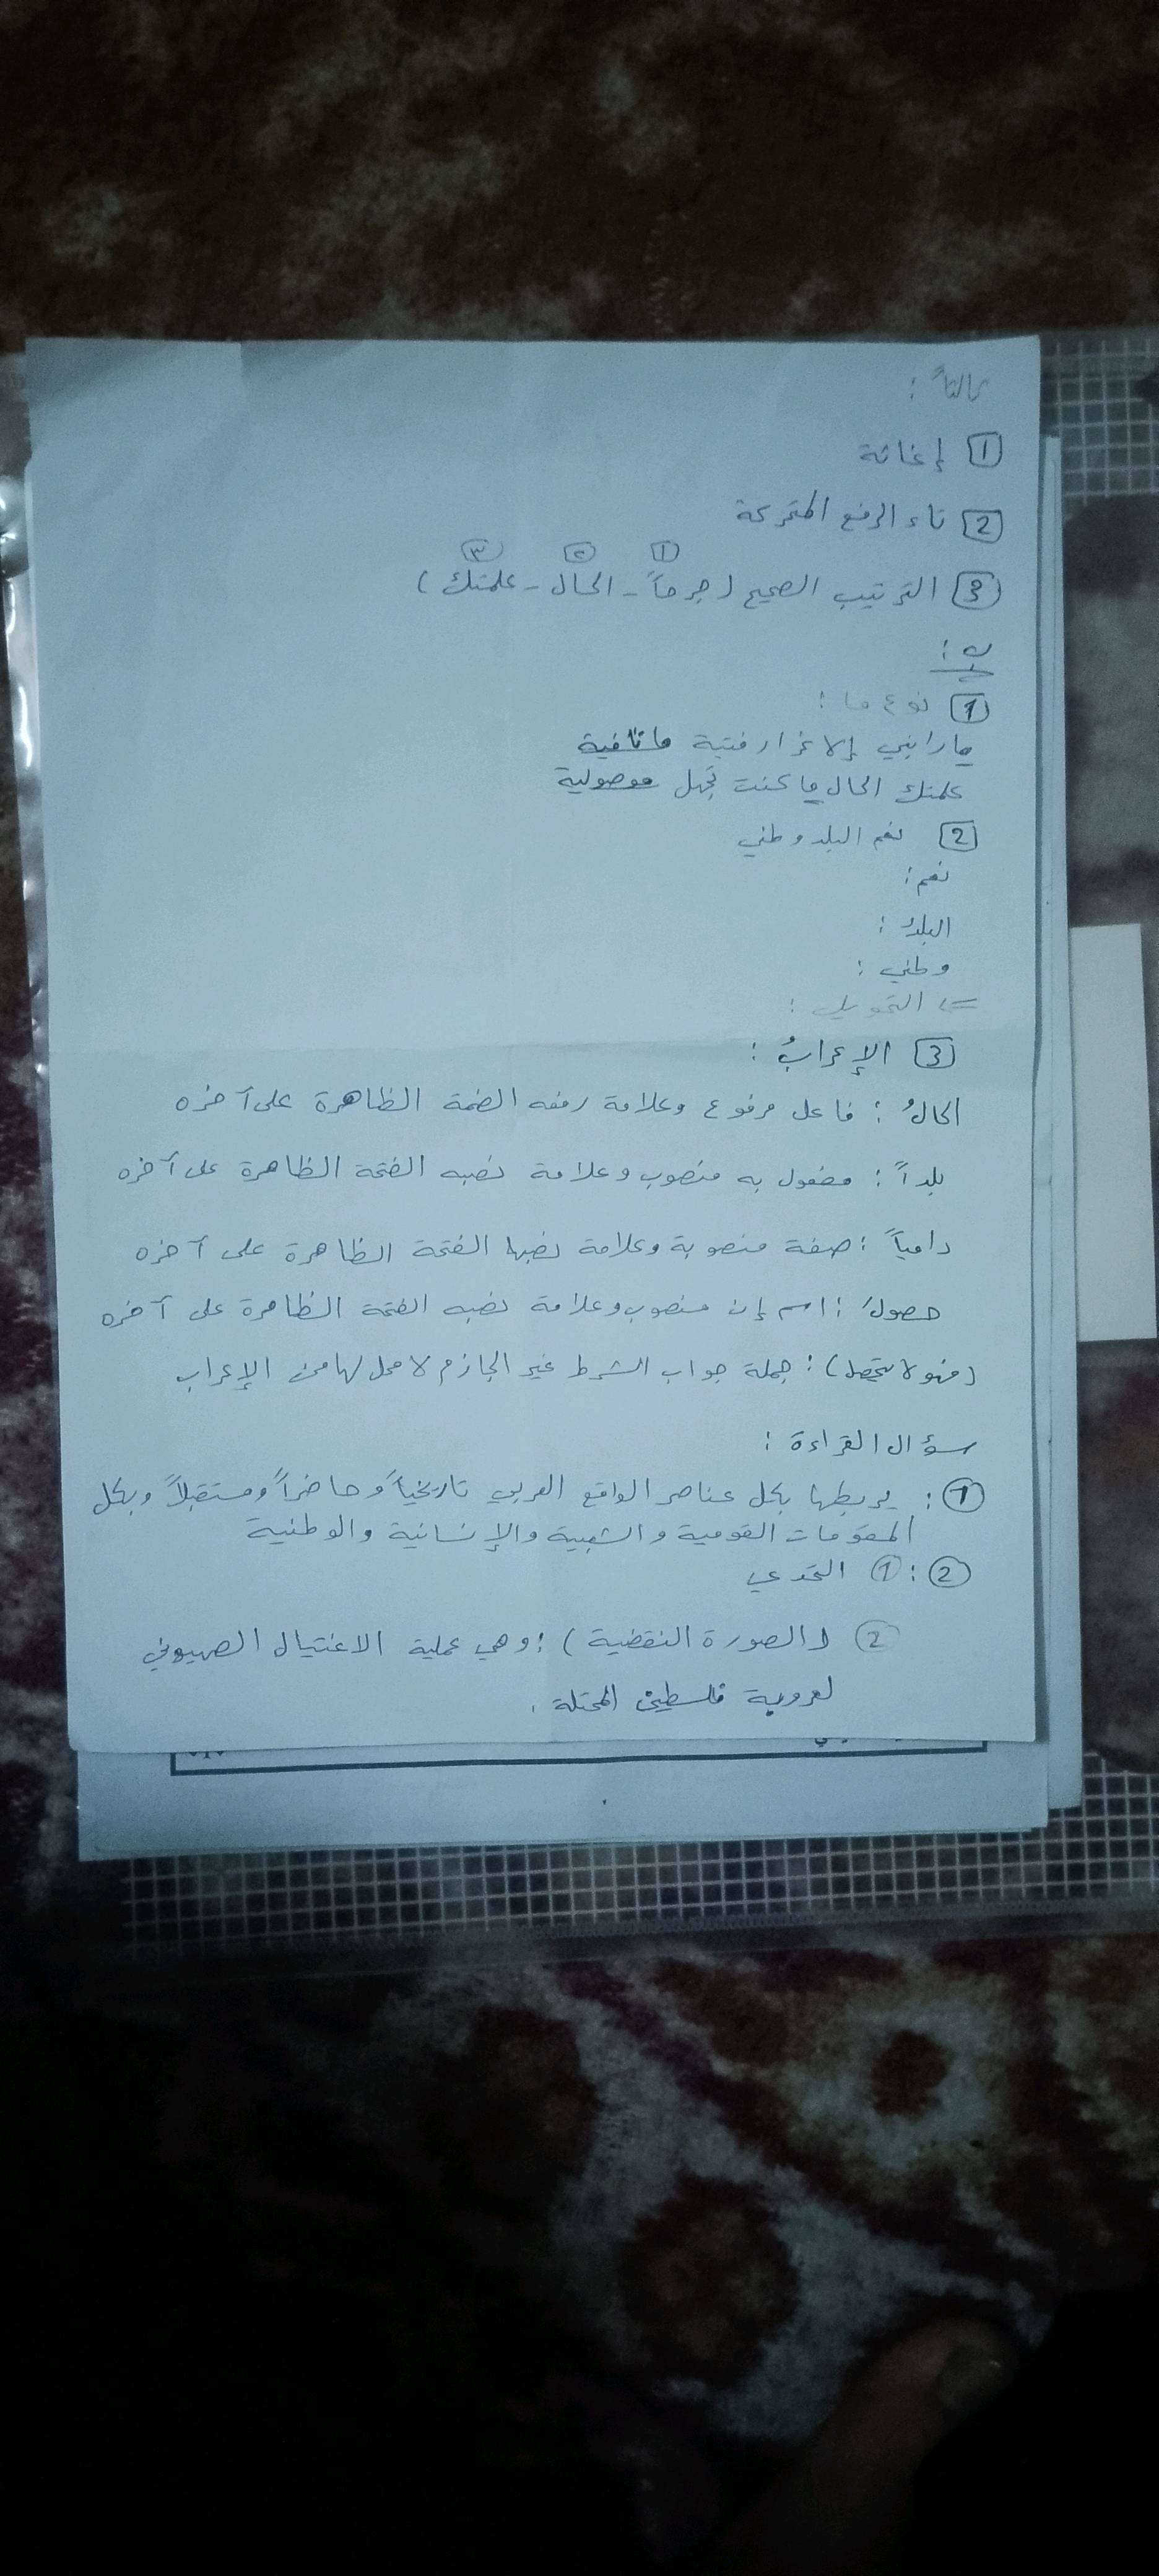 ثالثاً :
1 إغاثة
2 تاء الرفع المتحركة
١ ٢ ٣
3 الترتيب الصحيح (جرحاً - الحال - علمتك)
ب :
1 نوع ما :
ما رابني إلا غرار فتية ما نافية
علمتك الحال ما كنت تجهل موصولية
2 نعم البلد وطني
نعم :
البلدُ :
وطني :
<= التحويل :
3 الإعرابُ :
الحالُ : فاعل مرفوع وعلامة رفعه الضمة الظاهرة على آخره
بلداً : مفعول به منصوب وعلامة نصبه الفتحة الظاهرة على آخره
دامياً : صفة منصوبة وعلامة نصبها الفتحة الظاهرة على آخره
حصولَ : اسم إن منصوب وعلامة نصبه الفتحة الظاهرة على آخره
(فهو لا يحصل) : جملة جواب الشرط غير الجازم لا محل لها من الإعراب
سؤال القراءة :
1 : يربطها بكل عناصر الواقع العربي تاريخياً وحاضراً ومستقبلاً وبكل
المقومات القومية والشعبية والإنسانية والوطنية
2 : 1 التحدي
2 (الصورة النقضية) : وهي عملية الاغتيال الصهيوني
لعروبة فلسطين المحتلة .